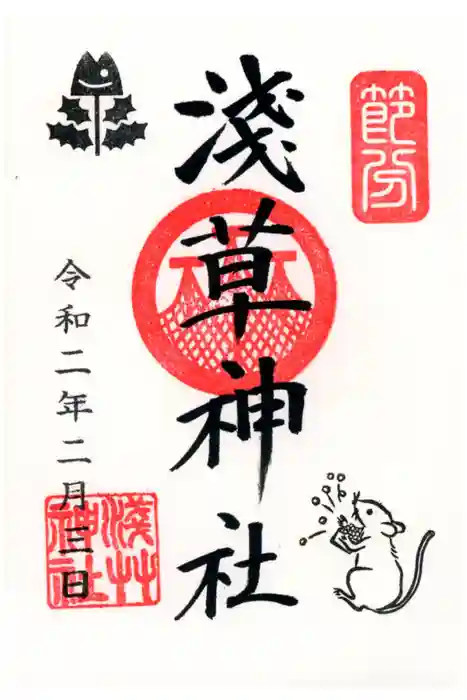 節分
淺草神社
令和二年二月三日
淺草神社